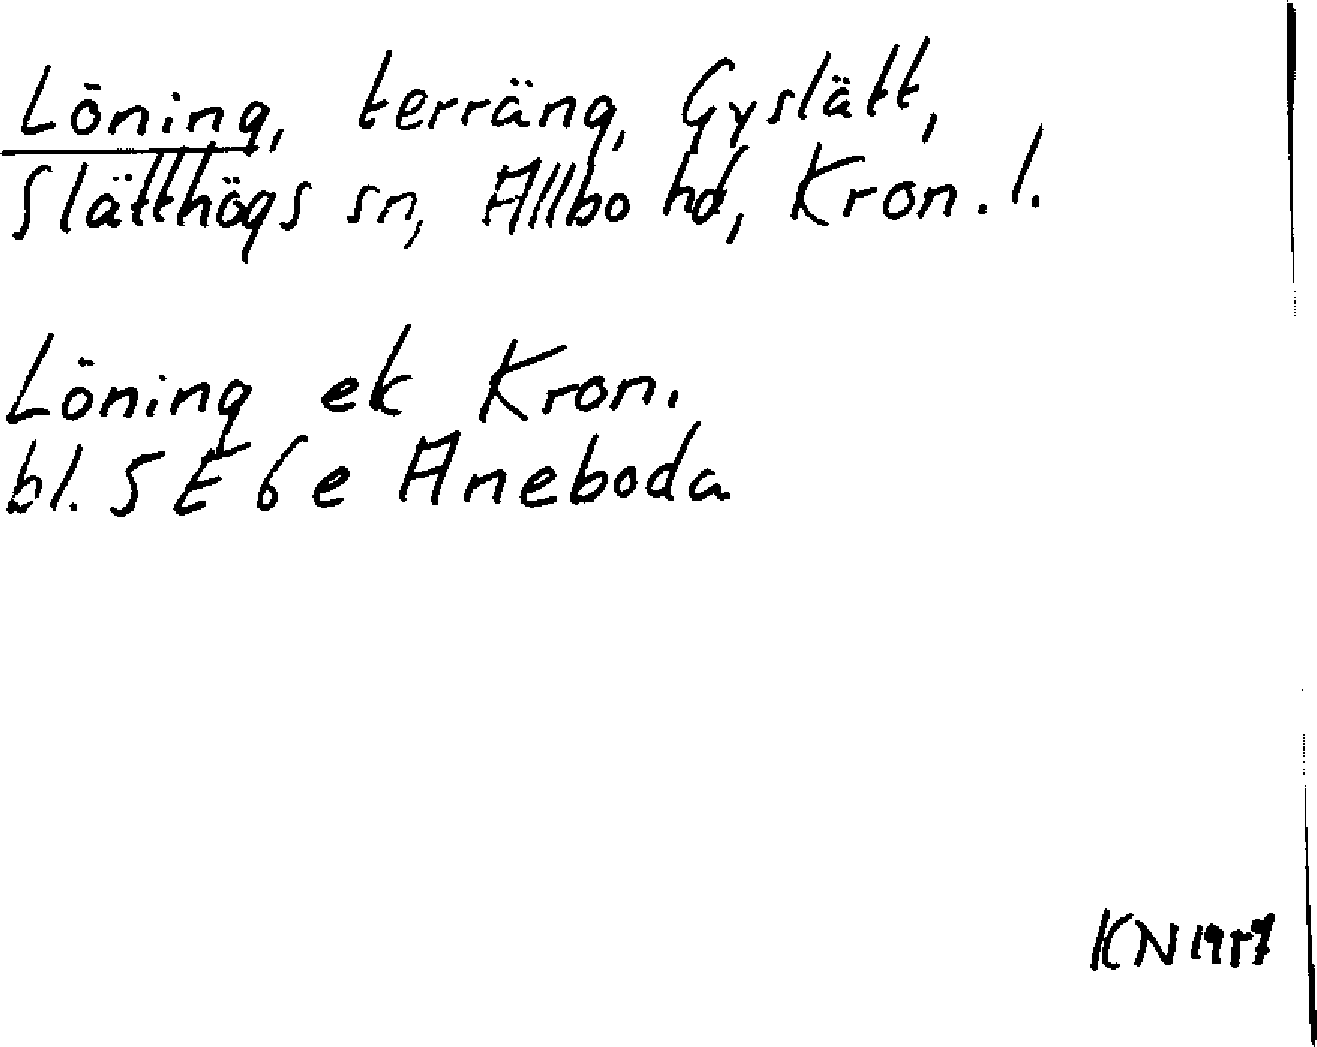 Löning, terräng, Gyslätt,
Slätthögs sn, Allbo hd, Kron. l.
Löning ek Kron.
bl. 5 E 6 e Aneboda
KN